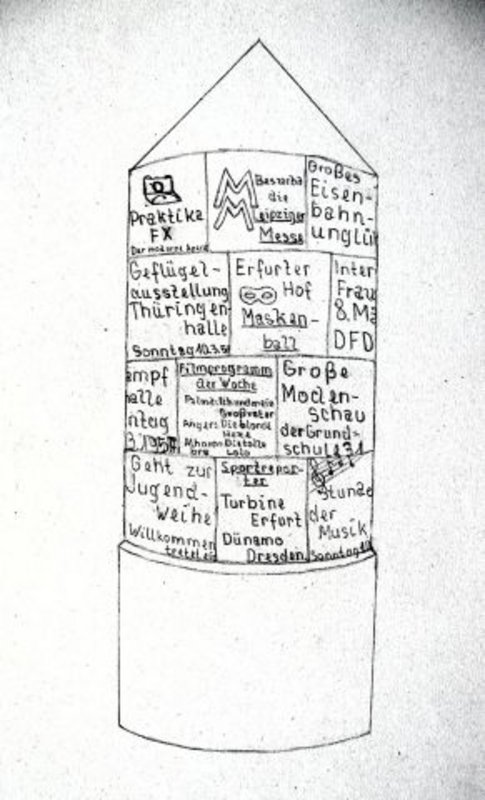 Praktika
FX
MM
Besucht
die
Leipziger
Messe
Großes
Eisen-
bahn-
unglü
Geflügel-
ausstellung
Thüringen
halle
Sonntag 10.3.5
Erfurter
Hof
Masken-
ball
Inter
Frau
8. Mä
DFD
ampf
alle
ntag
Filmprogramm
der Woche
Großvater
Angers Die blonde
Hexe
Die tolle
Lola
Große
Moden-
schau
der Grund-
schule 31
Geht zur
Jugend-
weihe
Willkommen
Sportrepor-
ter
Turbine
Erfurt
Dünamo
Dresden
Stunde
der
Musik
Sonntag